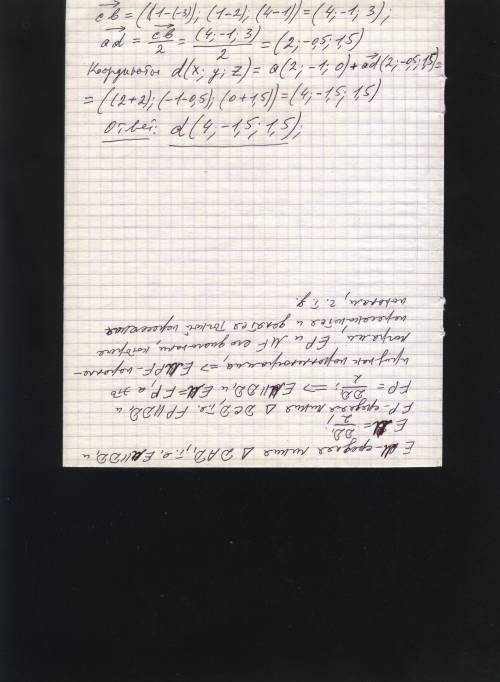 c⃗b = ((1-(-3)); (1-2); (4-1)) = (4; -1; 3);
a⃗d = c⃗b/2 = (4; -1; 3)/2 = (2; -0,5; 1,5)
Координаты d(x; y; z) = a(2; -1; 0) + a⃗d(2; -0,5; 1,5) =
= ((2+2); (-1-0,5); (0+1,5)) = (4; -1,5; 1,5)
Ответ: d(4; -1,5; 1,5);
EM - средняя линия Δ DAD₁, т.е. EM||DD₁ и
EM = DD₁/2;
FP - средняя линия Δ DCD₁, т.е. FP||DD₁ и
FP = DD₁/2; => EM||DD₁ и EM=FP, а это
признак параллелограмма, => EMPF - паралле-
лограмм, EP и MF его диагонали, которые
пересекаются и делятся точкой пересечения
пополам, ч.т.д.